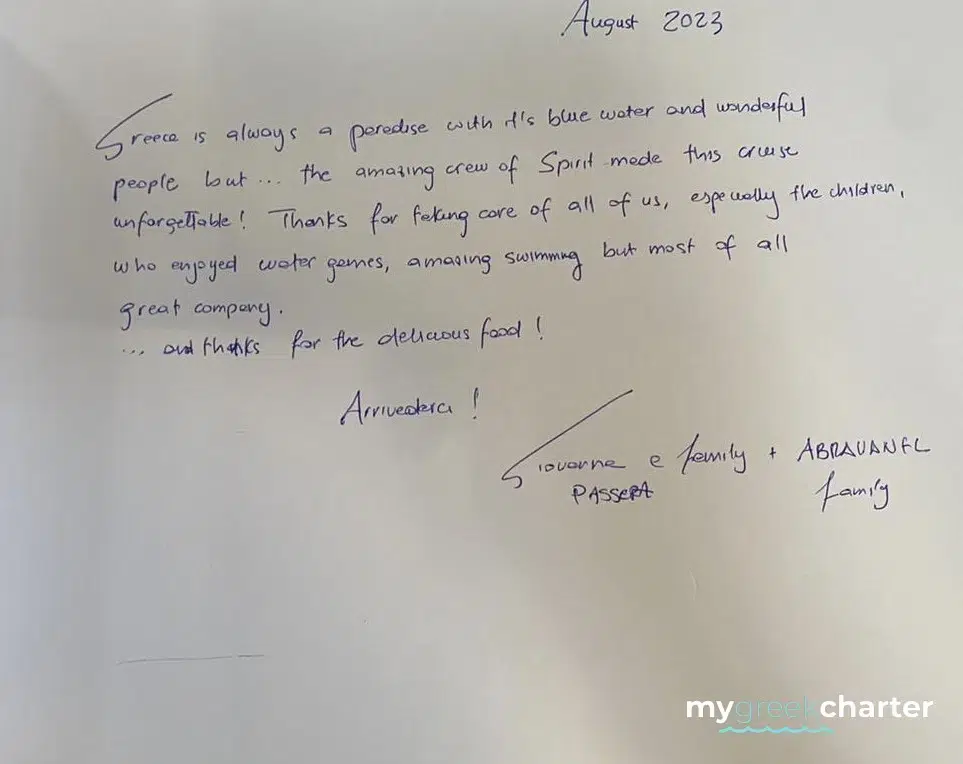 August 2023
Greece is always a paradise with it's blue water and wonderful
people but... the amazing crew of Spirit made this cruise
unforgettable! Thanks for taking care of all of us, especially the children,
who enjoyed water games, amazing swimming but most of all
great company.
... and thanks for the delicious food!
Arrivederci!
Giovanna e family + ABRAVANEL
PASSERA family
mygreekcharter